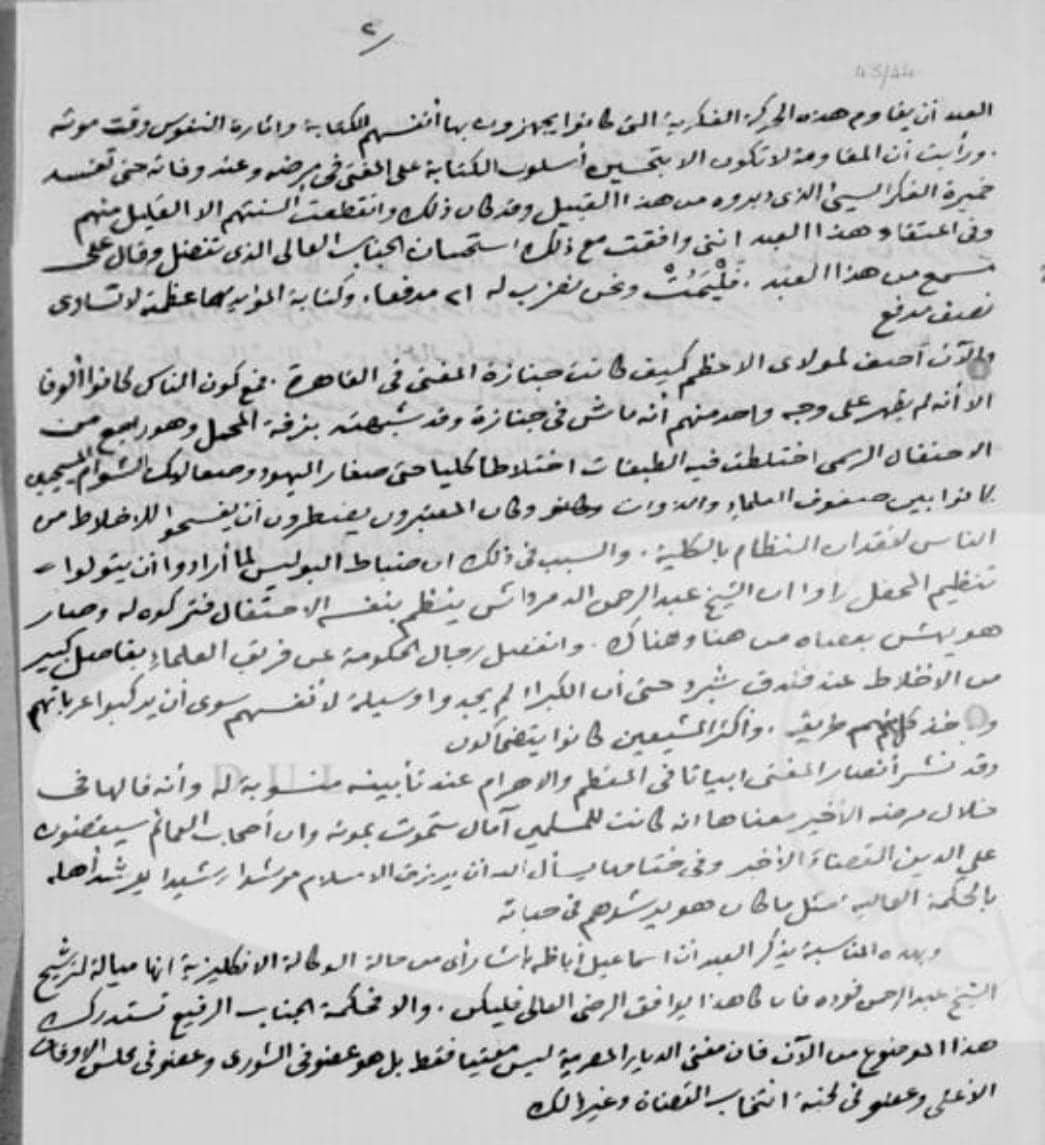 ٢
43/44
العبد أن يقاوم هذه الحركة الفكرية التى كانوا يجهزون بها أنفسهم للكتابة واثارة النفوس وقت موته
. ورأيت أن المقاومة لا تكون الا بتحسين أسلوب الكتابة على المفتى فى مرضه وعند وفاته حتى تفسد
خميرة الفكر السىء الذى دبروه من هذا القبيل وقد كان ذلك وانقطعت ألسنتهم الا القليل منهم
وفى اعتقاد هذا العبد اننى وافقت مع ذلك استحسان الجناب العالى الذى تفضل وقال على
مسمع من هذا العبد . فَلْيَمُتْ ونحن نضرب له ٢١ مدفعا . وكتابة المؤيد عظمة لا تساوى
نصف مدفع
والآن أصف لمولاى الاعظم كيف كانت جنازة المفتى فى القاهرة . فمع كون الناس كانوا ألوفا
الا أنه لم يظهر على وجه واحد منهم أنه ماش فى جنازة وقد شبهته بزفة المحمل وهو راجع من
الاحتفال الرسمى اختلطت فيه الطبقات اختلاطا كليا حتى صغار اليهود وصعاليك الشوام المسيحيين
كانوا بين صفوف العلماء والذوات وكان المعتبرون يضطرون أن يفسحوا للاخلاط من
الناس لفقدان النظام بالكلية . والسبب فى ذلك ان ضباط البوليس لما أرادوا أن يتولوا
تنظيم المحفل رأوا ان الشيخ عبد الرحمن الدمرداش ينظم بنفسه الاحتفال فتركوه له وصار
هو يهش بعصاه من هنا وهناك . وانفصل رجال الحكومة عن فريق العلماء بفاصل كبير
من الاخلاط عند فندق شبرد حتى أن الكبراء لم يجدوا وسيلة لأنفسهم سوى أن يركبوا عرباتهم
وأخذ كل منهم طريقه . وأكثر المشيعين كانوا يتضاحكون
وقد نشر أنصار المفتى ابياتا فى المقطم والاهرام عند تأبينه منسوبة له وأنه قالها فى
خلال مرضه الأخير معناها انه كانت للمسلمين آمال ستموت بموته وان أصحاب العمائم سيقضون
على الدين القضاء الأخير وفى ختامها يسأل الله أن يرزق الاسلام مرشدا رشيدا يرشد أهله
بالحكمة العالية مثل ما كان هو يرشدهم فى حياته
وبهذه المناسبة يذكر العبد أن اسماعيل أباظه باشا رأى من حالة الوكالة الانكليزية انها ميالة لترشيح
الشيخ عبد الرحمن فوده فان كان هذا يوافق الرضى العالى فليكن . والا فحكمة الجناب الرفيع تستدرك
هذا الموضوع من الآن فان مفتى الديار المصرية ليس مفتيا فقط بل هو عضو فى الشورى وعضو فى مجلس الاوقاف
الاعلى وعضو فى لجنة انتخاب القضاة وغير ذلك